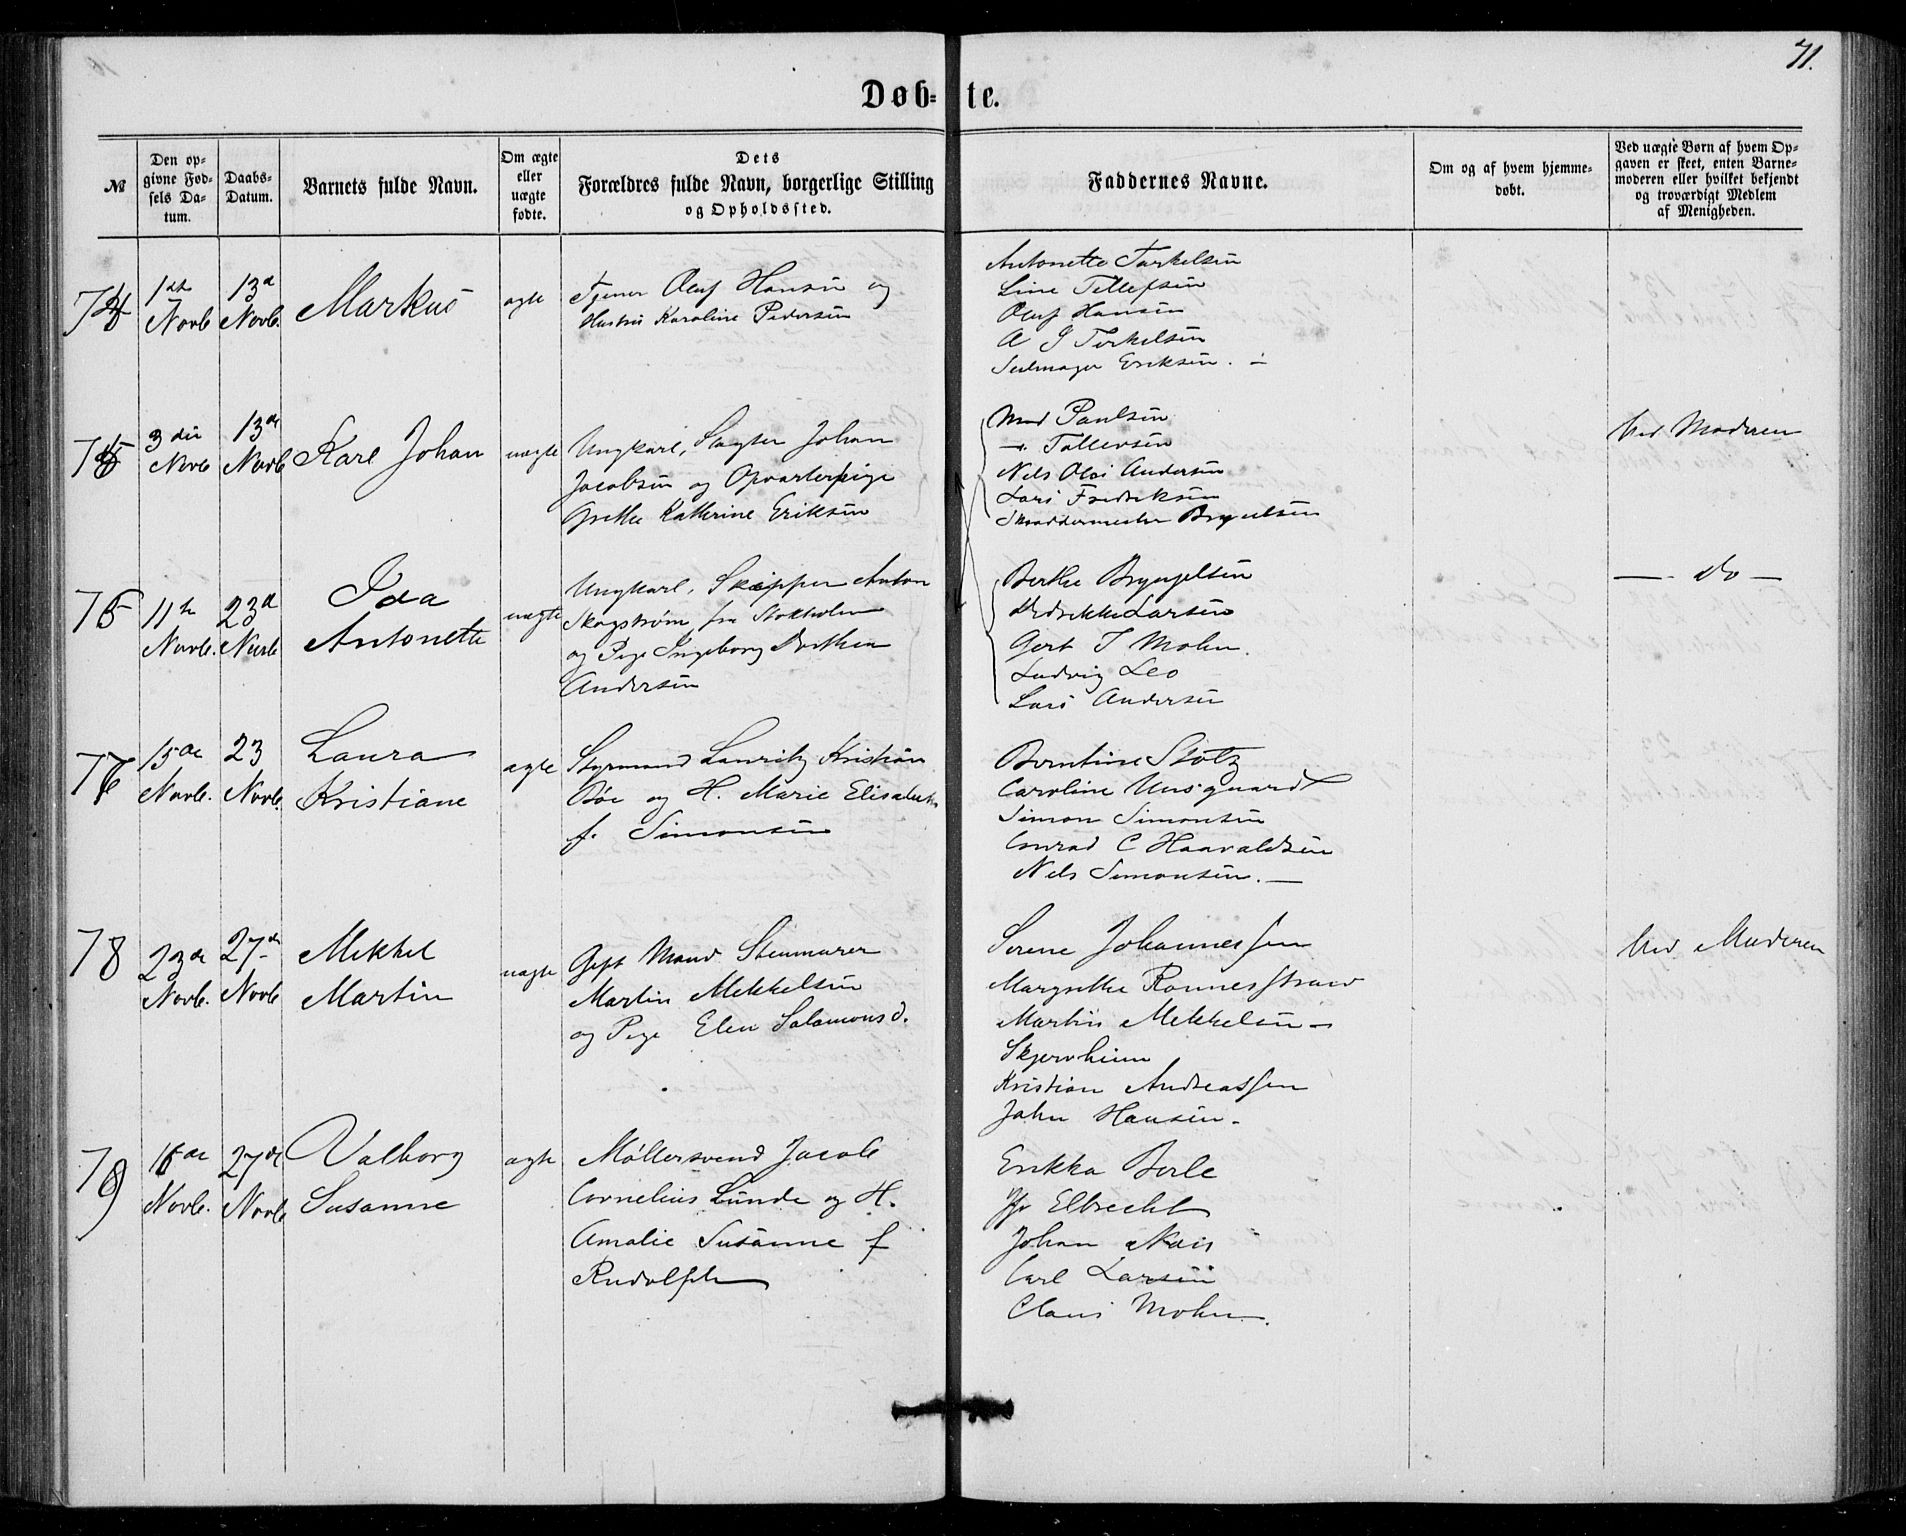 71.
Døb-te.
№
Den op-
givne Fød-
sels Da-
tum.
Daabs-
Datum.
Barnets fulde Navn.
Om ægte
eller
uægte
fødte.
Dets
Forældres fulde Navn, borgerlige Stilling
og Opholdssted.
Faddernes Navne.
Om og af hvem hjemme-
døbt.
Ved uægte Børn af hvem Op-
gaven er skeet, enten Barne-
moderen eller hvilket bekjendt
og troværdigt Medlem
af Menigheden.
74
1ste
Novb.
13de
Novb.
Markus
ægte
Tjener Oluf Hansen og
Hustru Karoline Pedersen
Antonette Torkelsen
Line Tellefsen
Oluf Hansen
A G Torkelsen
Seilmager Eriksen. -
75
3die
Novb
13de
Novb
Karl Johan
uægte
Ungkarl, Slagter Johan
Jacobsen og Opvarterpige
Grethe Kathrine Eriksen
Mad Paulsen
- Tallevsen
Nils Olai Andersen
Lars Fredriksen
Skræddermester Bryngelsen
ved Moderen
76
11te
Novb.
23de
Novb
Ida
Antonette
uægte
Ungkarl, Skipper Anton
Skogstrøm fra Stokholm
og Pige Ingeborg Dorthea
Andersen
Berthe Bryngelsen
Didrikke Larsen
Gert J Mohn.
Ludvig Leo
Lars Andersen
— do —
77
15de
Novb.
23
Novb.
Laura
Kristiane
ægte
Styrmand Lauritz Kristian
Bøe og H. Marie Elisabeth
f. Simonsen
Berntine Stoltz
Caroline Unsgaard
Simon Simonsen
Conrad C Haavaldsen
Nils Simonsen. —
78
23de
Novb.
27de
Novb
Mekkel
Martin
uægte
Gift Mand Stenmurer
Martin Mekkelsen
og Pige Elen Salamonsd.
Serene Johannessen
Margrethe Ronnesstraw
Martin Mekkelsen -
Skjervheim
Kristian Andreassen
John Hansen -
ved Moderen
79
16de
Novb.
27de
Novb
Valborg
Susanne
ægte
Møllersvend Jacob
Cornelius Lunde og H.
Amalie Susanne f
Rudolph
Erikka Berle
Fr Elbrecht
Johan Nais
Carl Larsen
Claus Mohn.